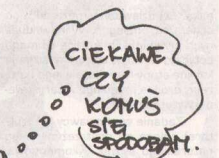 CIEKAWE
CZY
KOMUŚ
SIĘ
SPODOBAM.